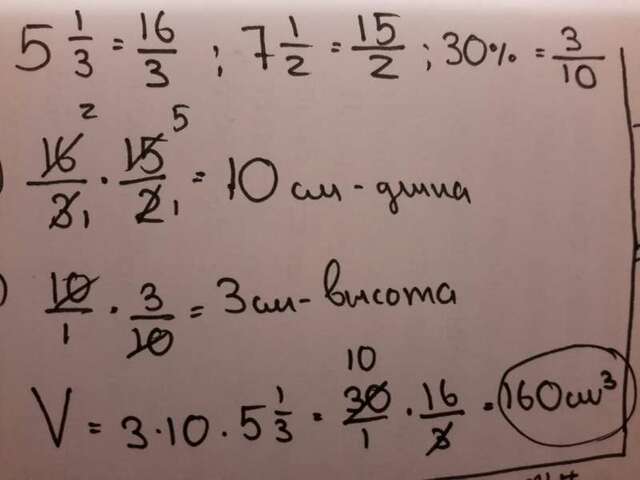 5 1/3 = 16/3 ; 7 1/2 = 15/2 ; 30% = 3/10
2 5
) 16/3 1 · 15/2 1 = 10 см - длина
) 10/1 · 3/10 = 3 см - высота
10
V = 3 · 10 · 5 1/3 = 30/1 · 16/3 = 160 см³